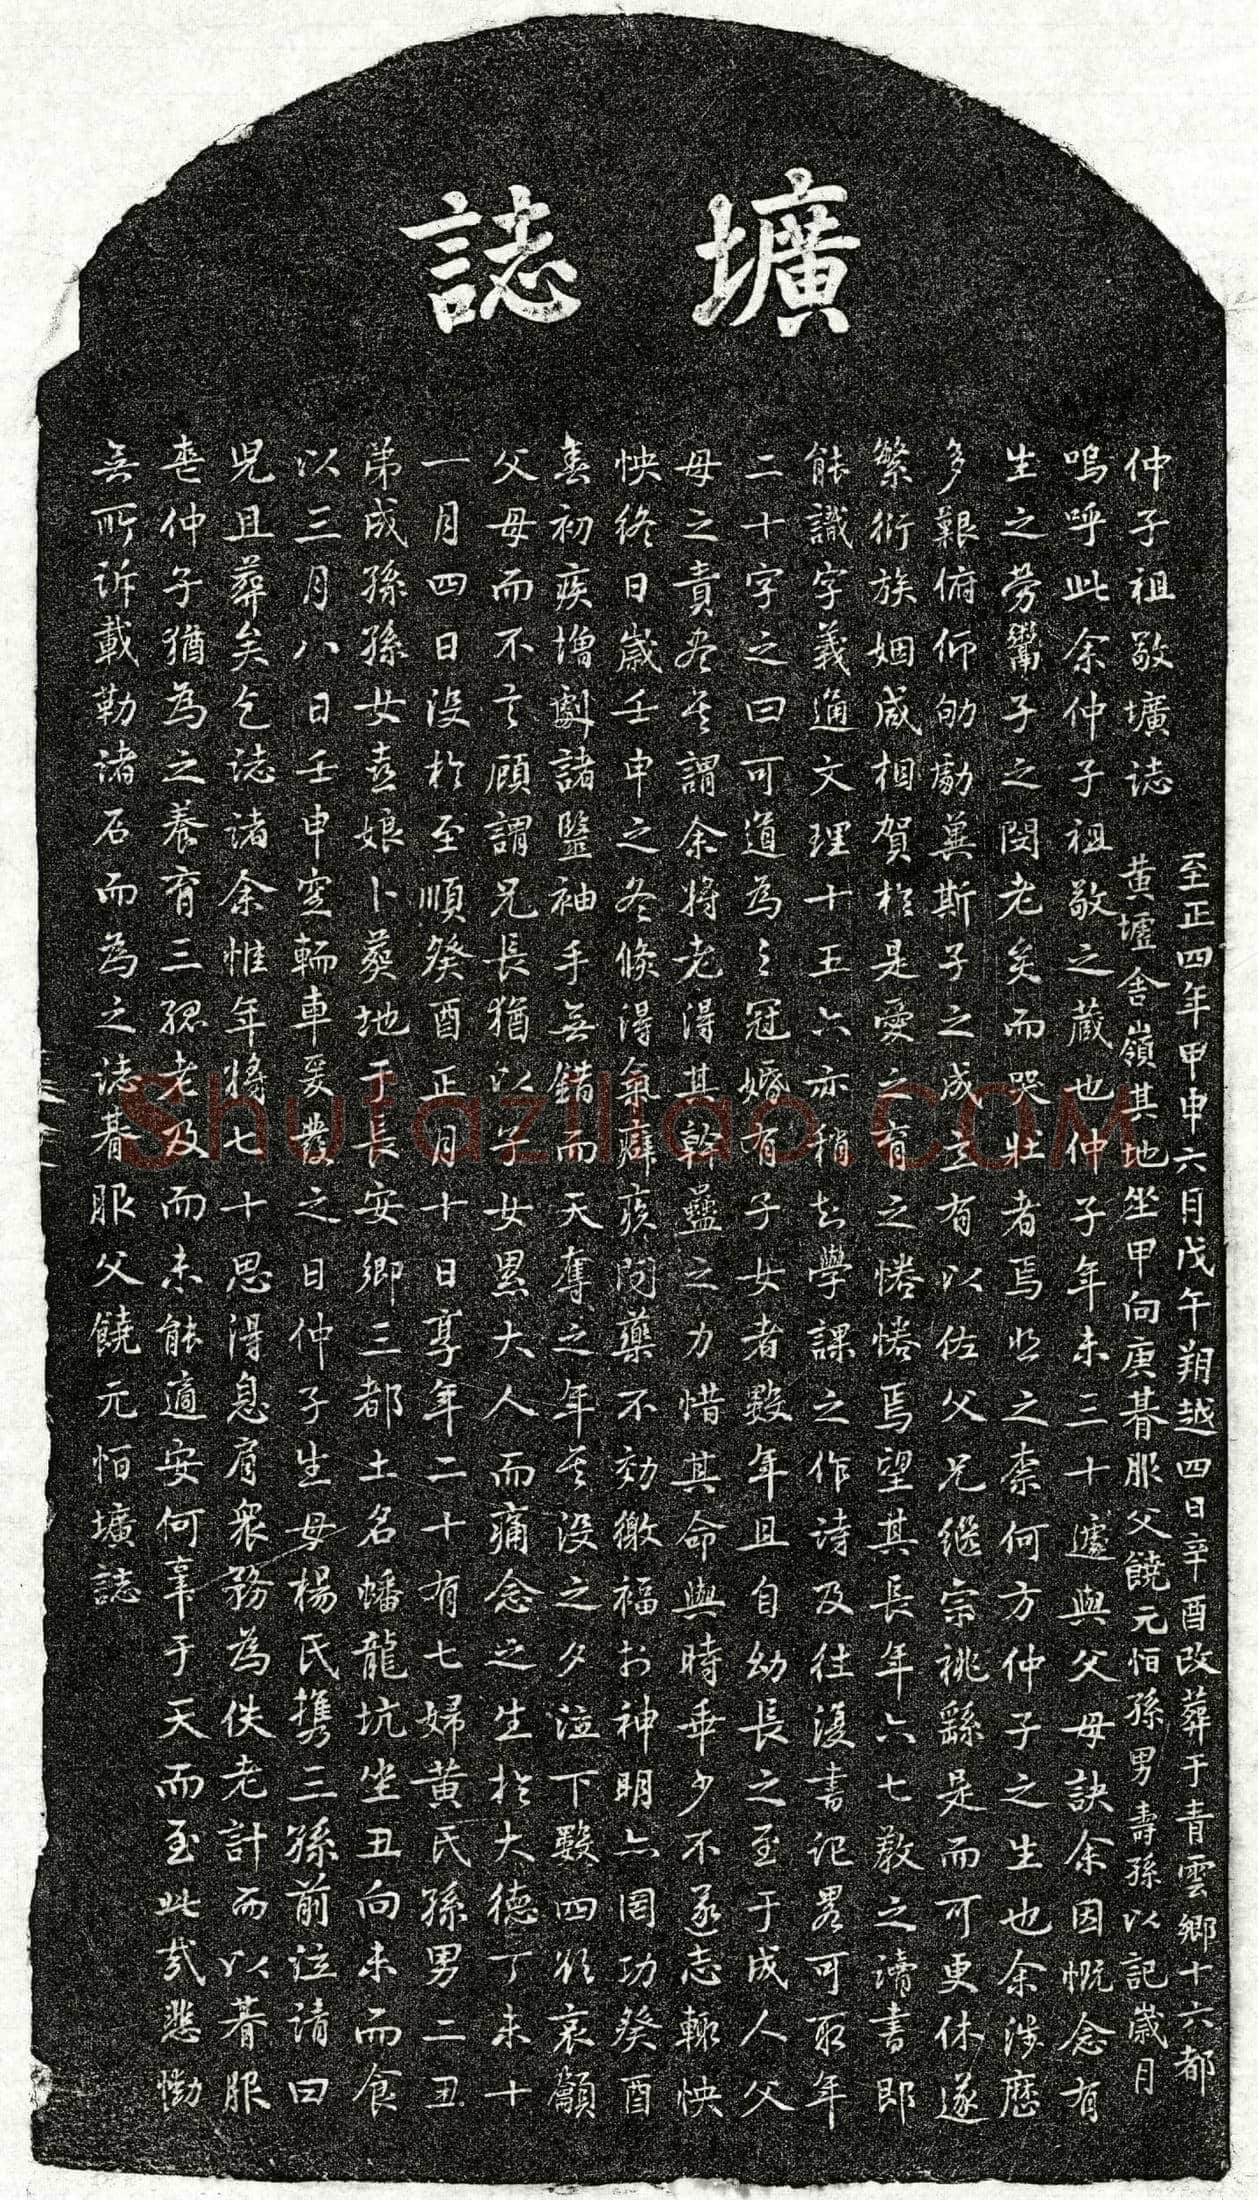 壙誌
至正四年甲申六月戊午朔越四日辛酉改葬于青雲鄉十六都
仲子祖敬壙誌
黃壚舍嶺其地坐甲向庚朞服父饒元怕孫男壽孫以記歲月
嗚呼此余仲子祖敬之藏也仲子年未三十遽與父母訣余因慨念有
生之勞鬻子之閔老矣而哭壯者焉如之柰何方仲子之生也余涉歷
多艱俯仰劬勮蓂斯子之成立有以佐父兄继宗祧繇是而可更休遂
繁衍族姻咸相賀於是愛之育之惓惓焉望其長年六七教之讀書即
能識字義通文理十五六亦稍知學課之作詩及往復書記畧可取年
二十字之曰可道為之冠婚有子女者數年且自幼長之至于成人父
母之責尽矣謂余將老得其幹蠱之力惜其命與時乖少不遂志輙怏
怏終日歲壬申之冬倏得氣癖疾問藥不効徼福於神明亦罔功癸酉
春初疾增劇諸毉袖手無錯而天奪之年矣沒之夕泣下數四欲哀籲
父母而不言顧謂兄長猶以子女累大人而痛念之生於大德丁未十
一月四日沒於至順癸酉正月十日享年二十有七婦黃氏孫男二丑
弟成孫孫女壴娘卜葵地于長安鄉三都土名蟠龍坑坐丑向未而食
以三月八日壬申窆輀車爰發之日仲子生母楊氏携三孫前泣請曰
児且葬矣乞誌諸余惟年將七十思得息肩衆務為佚老計而以朞服
丧仲子猶為之養育三孤老及而未能適安何辜于天而至此哉悲慟
無所诉載勒诸石而為之誌朞服父饒元怕壙誌
Shufaziliao.COM